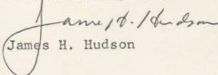 James H. Hudson
James H. Hudson